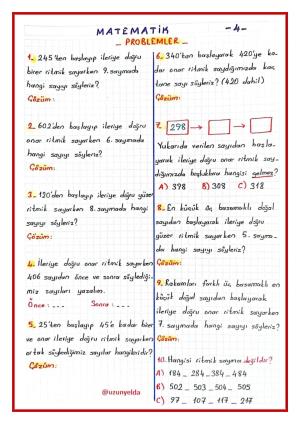 MATEMATİK -4-
- PROBLEMLER -
1- 245'ten başlayıp ileriye doğru
birer ritmik sayarken 9. sayımada
hangi sayıyı söyleriz?
Çözüm:
2- 602'den başlayıp ileriye doğru
onar ritmik sayarken 6. saymada
hangi sayıyı söyleriz?
Çözüm:
3- 120'den başlayıp ileriye doğru yüzer
ritmik sayarken 8. saymada hangi
sayıyı söyleriz?
Çözüm:
4- İleriye doğru onar ritmik sayarken
406 sayından önce ve sonra söylediği-
miz sayıları yazalım.
Önce: --- Sonra: ---
5- 25'ten başlayıp 45'e kadar birer
ve onar ileriye doğru ritmik sayarken
ortak söylediğimiz sayılar hangileridir?
Çözüm:
6- 340'dan başlayarak 420'ye ka-
dar onar ritmik saydığımızda kaç
tane sayı söyleriz? (420 dahil)
Çözüm:
7- 298
Yukarıda verilen sayıdan başla-
yarak ileriye doğru onar ritmik say-
dığımızda boşluklara hangisi gelmez?
A) 398 B) 308 C) 318
8- En küçük üç basamaklı doğal
sayıdan başlayarak ileriye doğru
yüzer ritmik sayarken 5. sayma-
da hangi sayıyı söyleriz?
Çözüm:
9- Rakamları farklı üç basamaklı en
küçük doğal sayıdan başlayarak
ileriye doğru onar ritmik sayarken
7. saymada hangi sayıyı söyleriz?
Çözüm:
10- Hangisi ritmik sayma değildir?
A) 184 _ 284 _ 384 _ 484
B) 502 _ 503 _ 504 _ 505
C) 97 _ 107 _ 117 _ 217
@uzunyelda